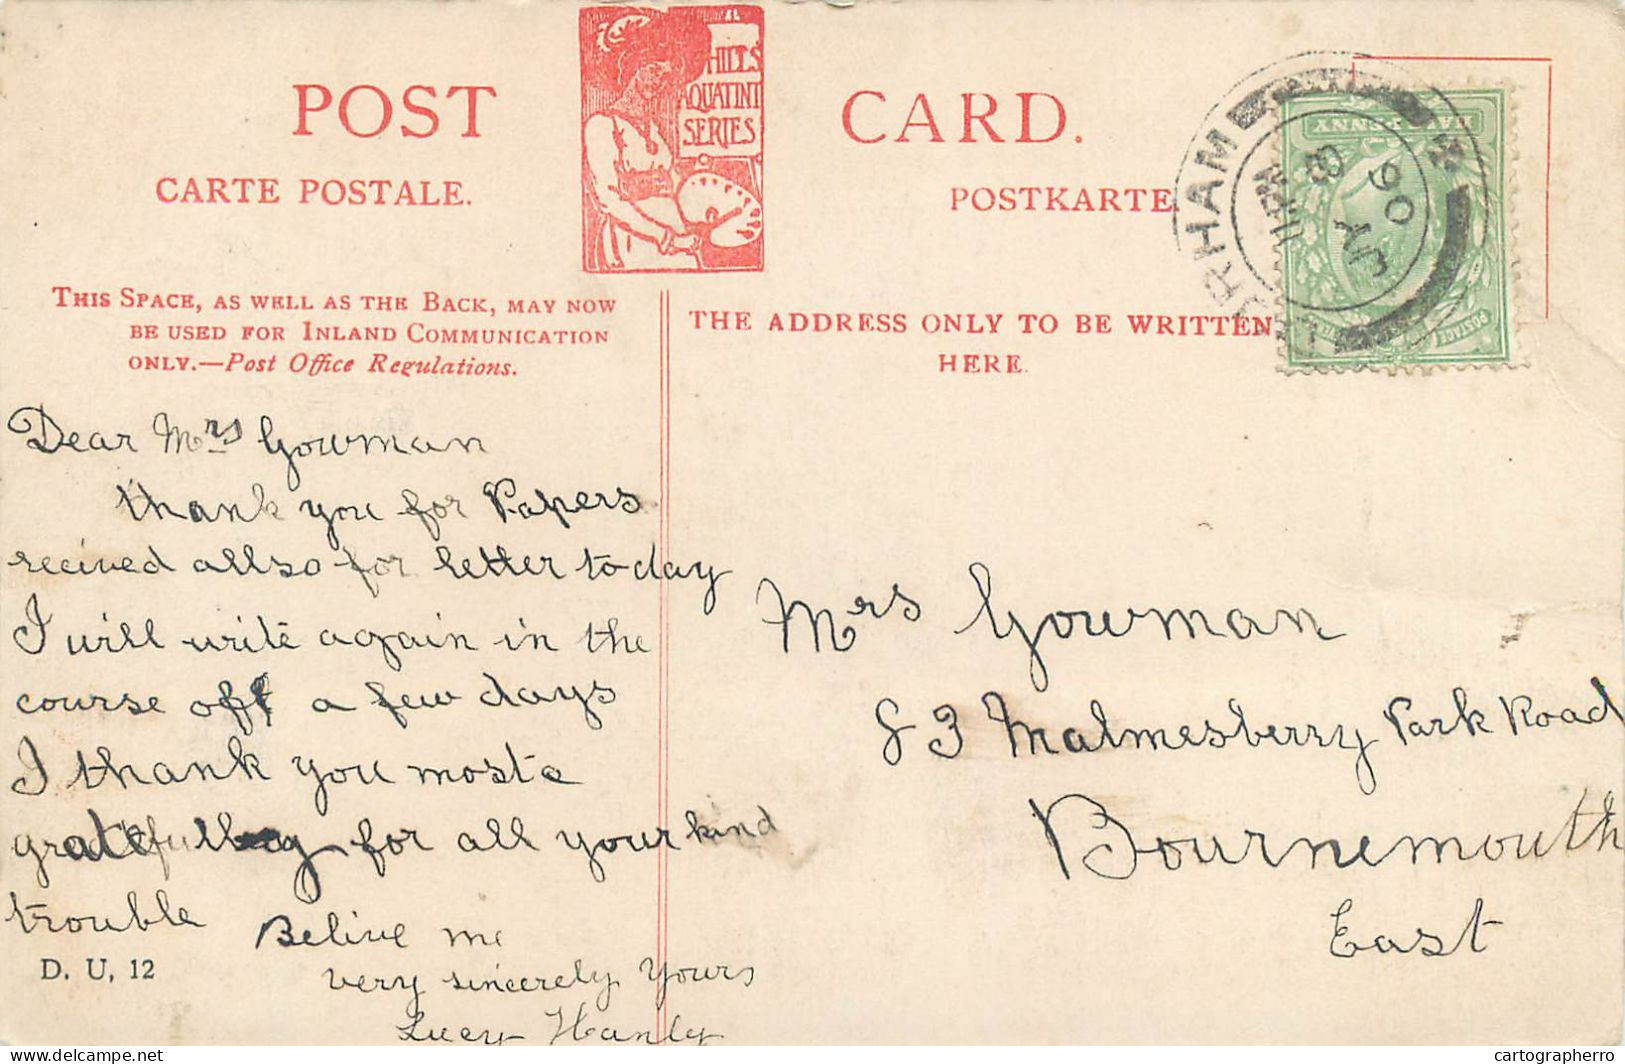 POST CARD.
HILLS
AQUATINT
SERIES
CARTE POSTALE.
POSTKARTE
THIS SPACE, AS WELL AS THE BACK, MAY NOW
BE USED FOR INLAND COMMUNICATION
ONLY.—Post Office Regulations.
THE ADDRESS ONLY TO BE WRITTEN
HERE.
HALF PENNY
POSTAGE
URHAM
11 PM
8
06
Dear Mrs Gowman
thank you for Papers
recived allso for letter to day
I will write again in the
course off a few days
I thank you moste
gratefully for all your kind
trouble
Belive me
very sincerely yours
Lucy Hanly
D. U. 12
Mrs Gowman
83 Malmesberry Park Road
Bournemouth
East
delcampe.net
cartographerro